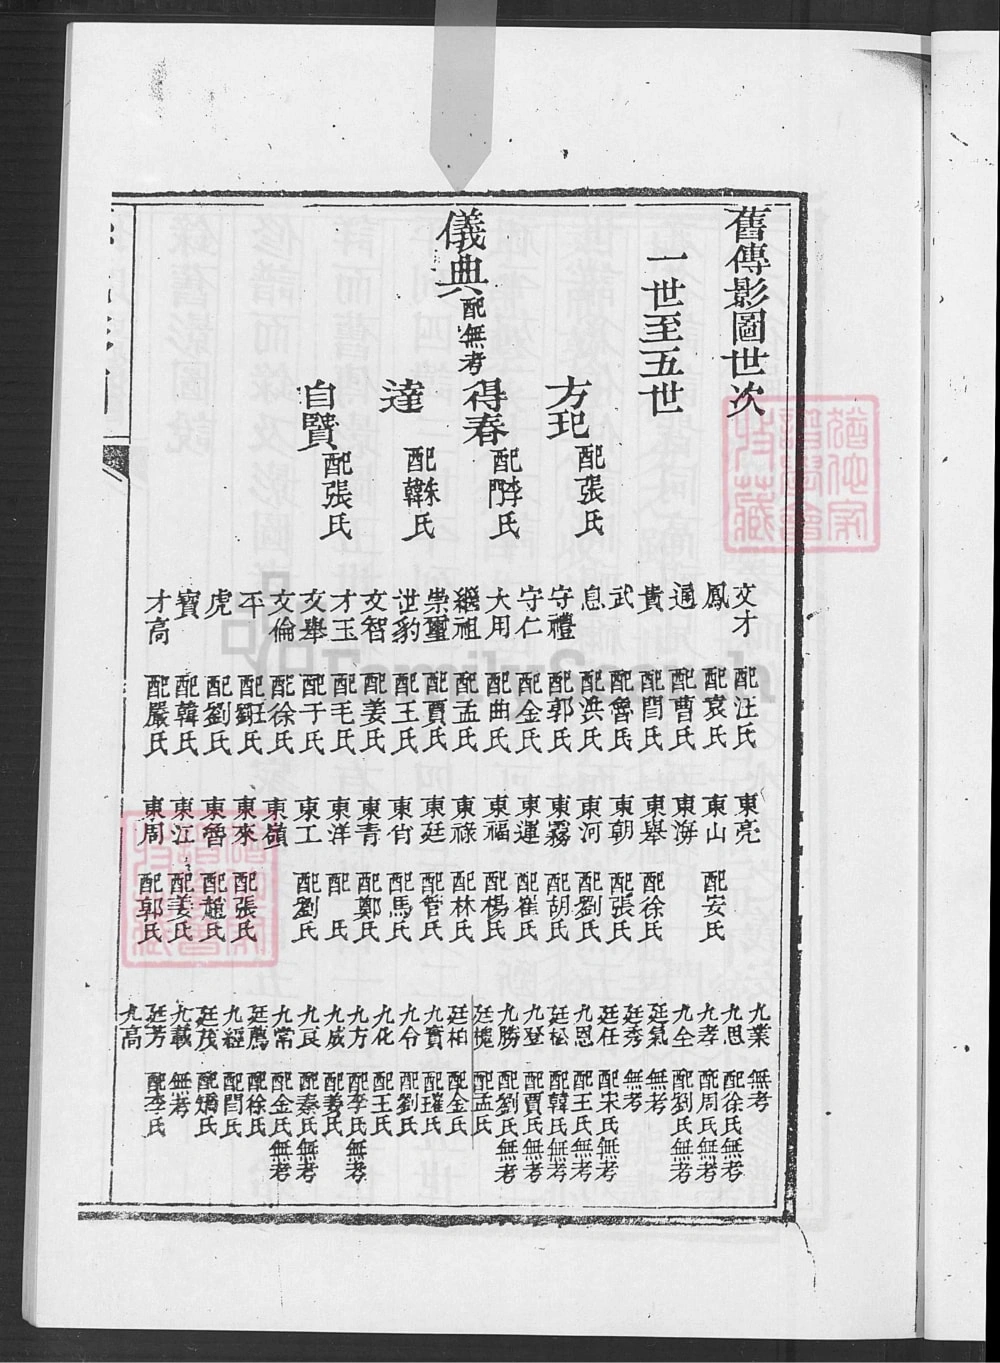 舊傳影圖世次
一世至五世
儀典 配無考
方玘 配張氏
得春 配李氏 門
達 配朱氏 韓
自賢 配張氏
文才 配汪氏
鳳 配袁氏
通 配曹氏
貴 配閆氏
武 配魯氏
息 配洪氏
守禮 配郭氏
守仁 配金氏
大用 配曲氏
繼祖 配孟氏
崇璽 配賈氏
世豹 配王氏
文智 配姜氏
才玉 配毛氏
文舉 配于氏
文倫 配徐氏
平 配劉氏 汪
虎 配劉氏
寶 配韓氏
才高 配嚴氏
東亮
東山 配安氏
東海
東舉 配徐氏
東朝 配張氏
東河 配劉氏
東霧 配胡氏
東運 配崔氏
東福 配楊氏
東祿 配林氏
東廷 配管氏
東肖 配馬氏
東青 配鄭氏
東洋 配 氏
東工 配劉氏
東嶺
東來 配張氏
東魯 配趙氏
東江 配姜氏
東周 配郭氏
九業 無考
九思 配徐氏無考
九孝 配周氏無考
九全 配劉氏無考
廷氣 無考
廷秀 無考
廷任 配宋氏無考
九恩 配王氏無考
廷松 配韓氏無考
九登 配賈氏無考
九勝 配劉氏無考
廷 配孟氏
廷柏 配金氏
九寶 配瓘氏
九令 配劉氏
九化 配王氏
九方 配李氏無考
九威 配姜氏
九良 配秦氏無考
九常 配金氏無考
廷薦 配徐氏
九經 配閆氏
廷茂 配矯氏
九載 無考
廷芳 配李氏
九高